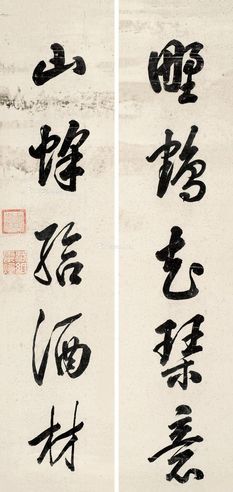 野鶴起琴意
山蜂給酒材